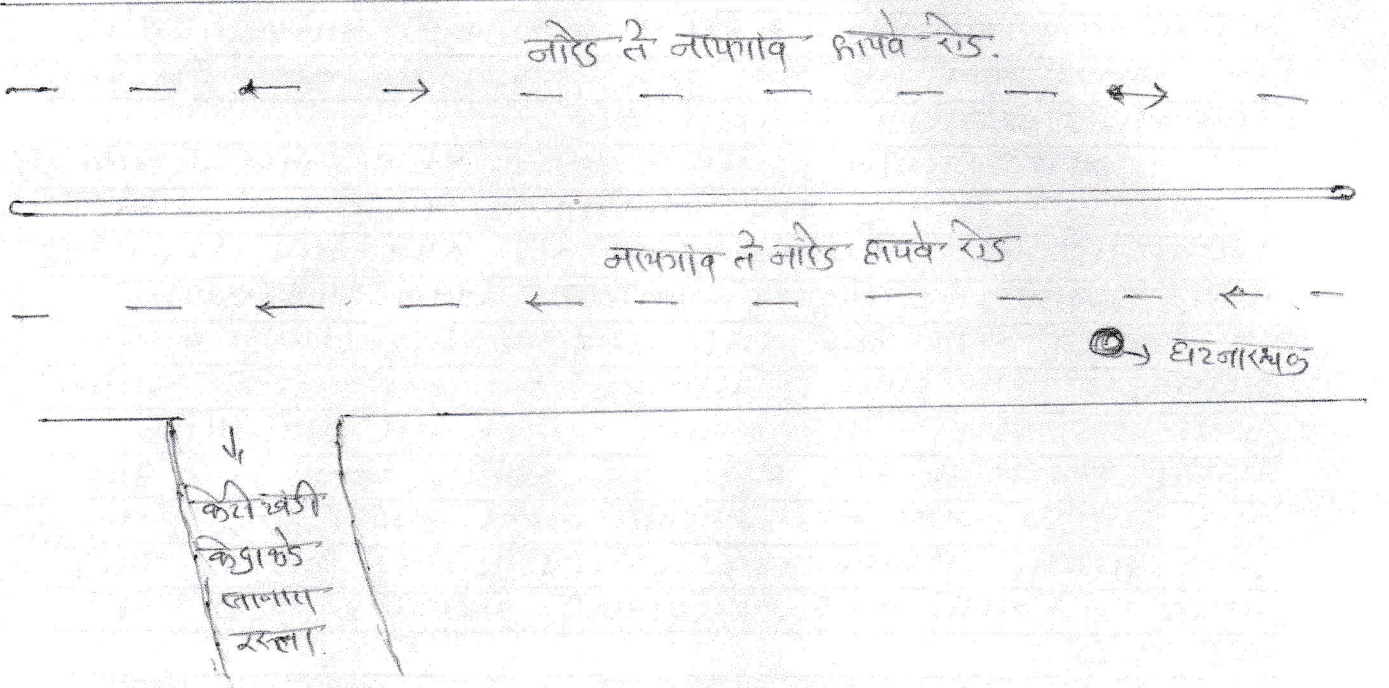 नांदेड ते नायगांव हायवे रोड.
नायगांव ते नांदेड हायवे रोड
→ घटनास्थळ
जाणारा
रस्ता